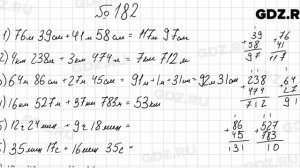 GDZ.RU
№ 182
1) 76м 39см + 41м 58см = 117м 97см
2) 4км 238м + 3км 474м = 7км 712м
3) 64м 86см + 27м 45см = 91м + 1м + 31см = 92м 31см
4) 16км 527м + 37км 783м = 53км
5) 12ч 24мин + 9ч 18мин =
6) 35мин 17с + 16мин 35с =
39
+58
97
76
+41
117
238
+474
712
64
+27
91
86
+45
131
527
+783
10
GDZ.RU